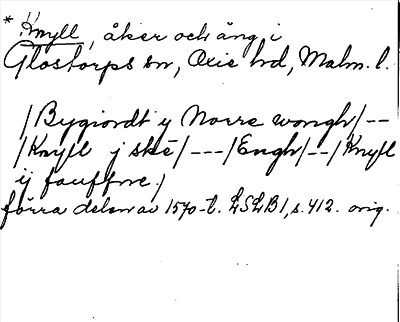 * Knyll, åker och äng i
Glostorps sn, Oxie hd, Malm. l.
/Bygiordt y Norre wongh/--
/Knyll j ske/---/Engh/--/Knyll
ij fauffne./
förra delen av 1570-t. LSLB1, s. 412. orig.